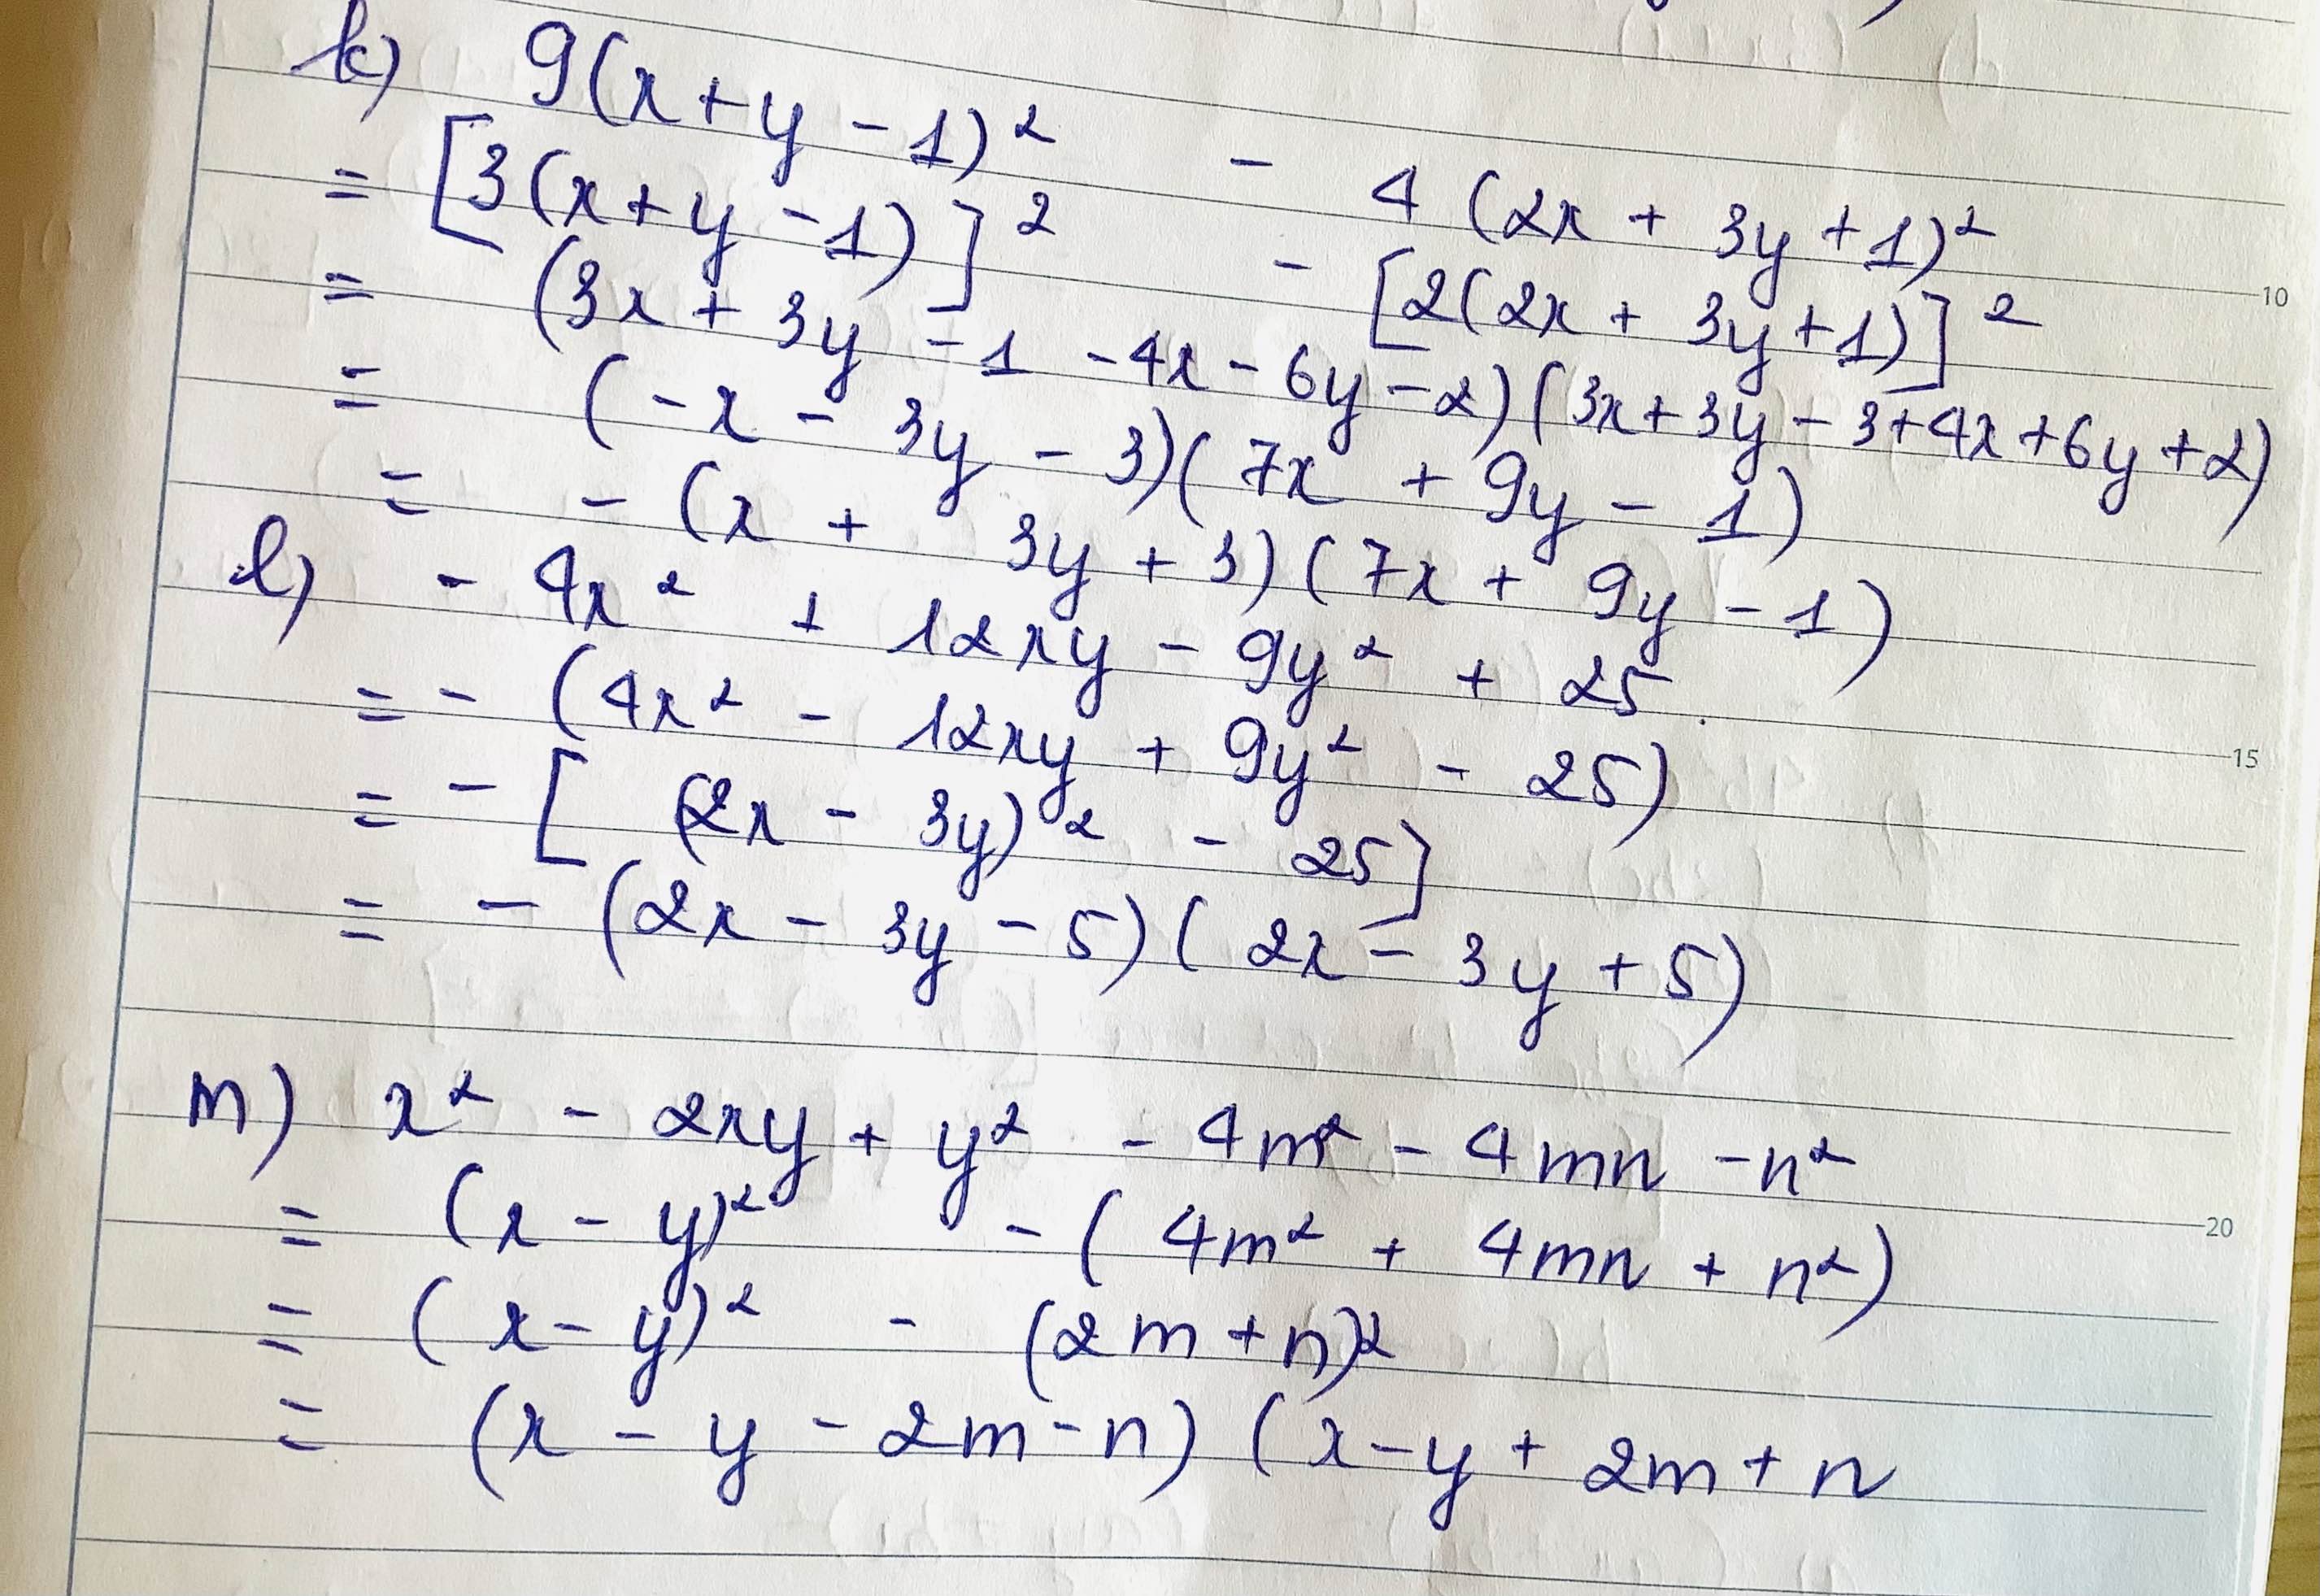 k) 9(x+y-1)² - 4(2x + 3y+1)²
= [3(x+y-1)]² - [2(2x + 3y+1)]²
= (3x + 3y -1 -4x - 6y -2)(3x+3y-3+4x+6y+2)
= (-x - 3y - 3)(7x + 9y - 1)
= - (x + 3y + 3)(7x + 9y - 1)
l) - 4x² + 12xy - 9y² + 25
= - (4x² - 12xy + 9y² - 25)
= - [(2x - 3y)² - 25]
= - (2x - 3y - 5)(2x - 3y + 5)
m) x² - 2xy + y² - 4m² - 4mn - n²
= (x - y)² - (4m² + 4mn + n²)
= (x - y)² - (2m + n)²
= (x - y - 2m - n) (x - y + 2m + n
10
15
20